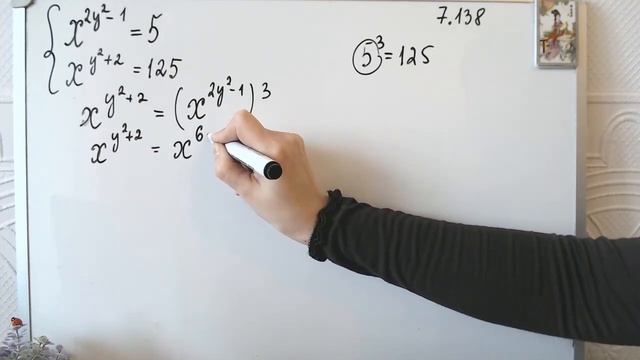 7.138
x^{2y²-1} = 5
x^{y²+2} = 125
5³ = 125
x^{y²+2} = (x^{2y²-1})³
x^{y²+2} = x^6